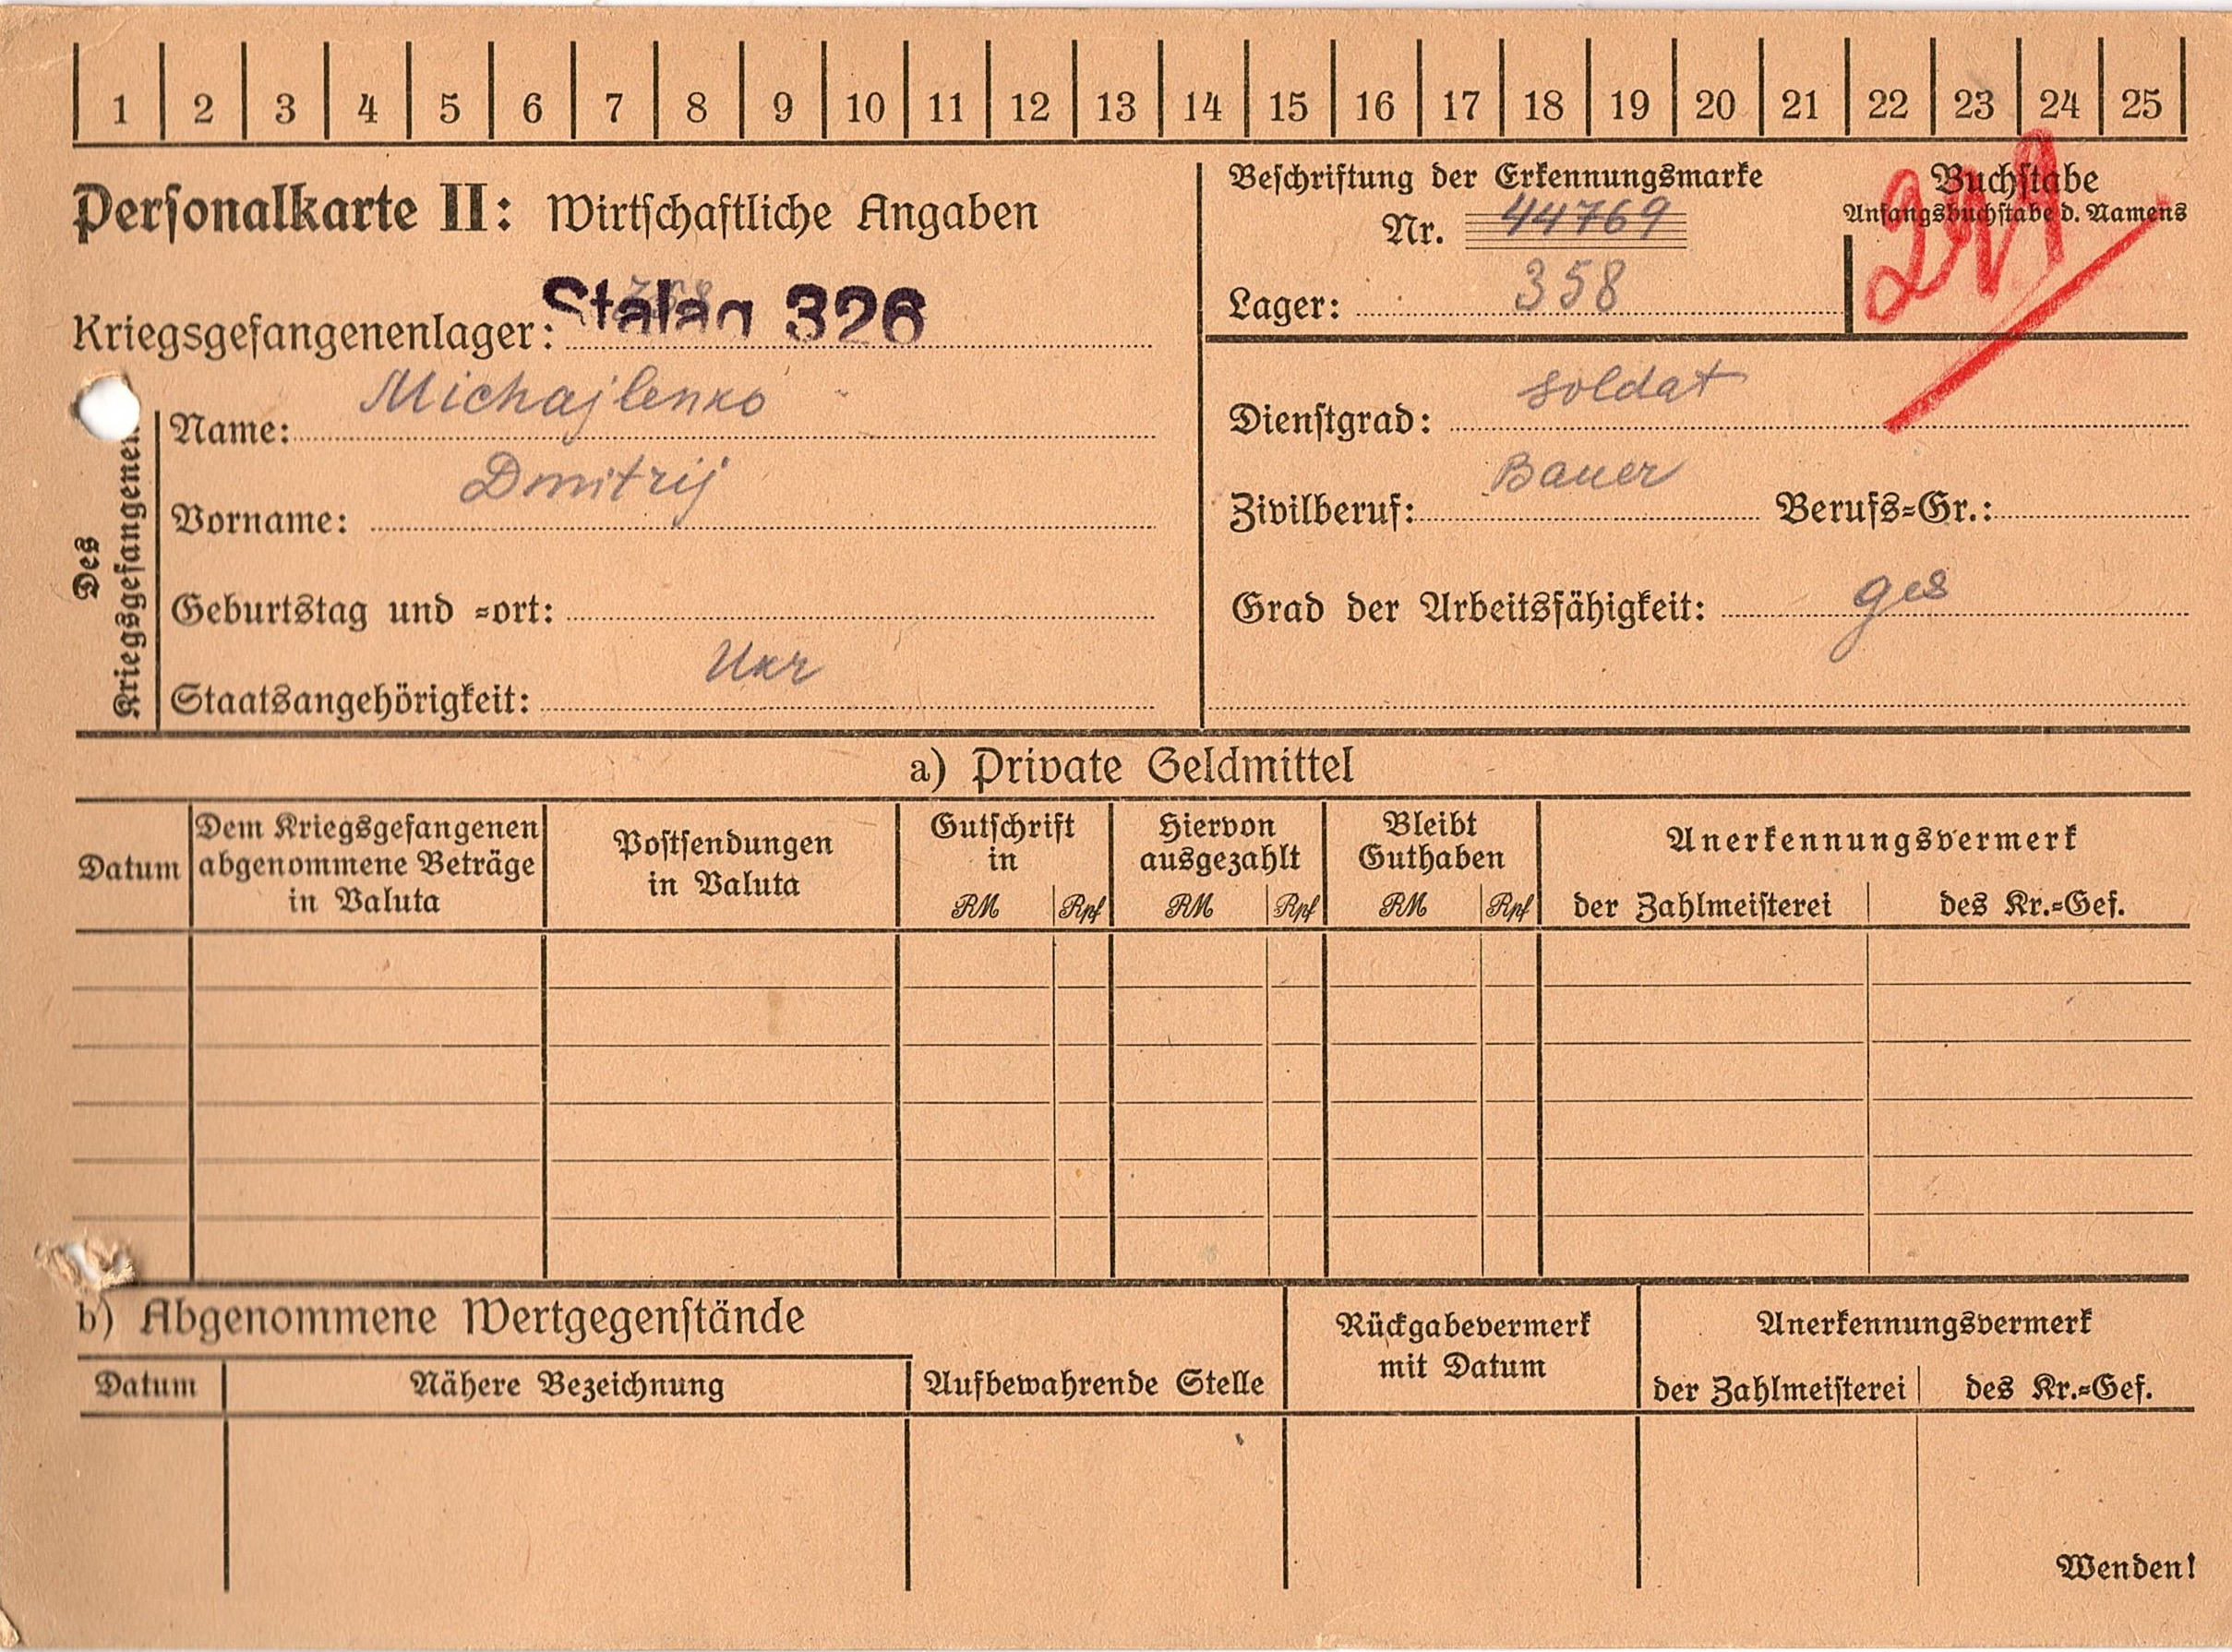 1 2 3 4 5 6 7 8 9 10 11 12 13 14 15 16 17 18 19 20 21 22 23 24 25
Personalkarte II: Wirtschaftliche Angaben
Kriegsgefangenenlager: Stalag 326
Beschriftung der Erkennungsmarke
Nr. 44769
Lager: 358
Buchstabe
Anfangsbuchstabe d. Namens
Des
Kriegsgefangenen
Name: Michajlenko
Vorname: Dmitrij
Geburtstag und =ort:
Staatsangehörigkeit: Ukr
Dienstgrad: soldat
Zivilberuf: Bauer Berufs=Gr.:
Grad der Arbeitsfähigkeit: ges
a) Private Geldmittel
Datum
Dem Kriegsgefangenen
abgenommene Beträge
in Valuta
Postsendungen
in Valuta
Gutschrift
in
RM Rpf
Hiervon
ausgezahlt
RM Rpf
Bleibt
Guthaben
RM Rpf
Anerkennungsvermerk
der Zahlmeisterei des Kr.=Gef.
b) Abgenommene Wertgegenstände
Datum Nähere Bezeichnung
Aufbewahrende Stelle
Rückgabevermerk
mit Datum
Anerkennungsvermerk
der Zahlmeisterei des Kr.=Gef.
Wenden!